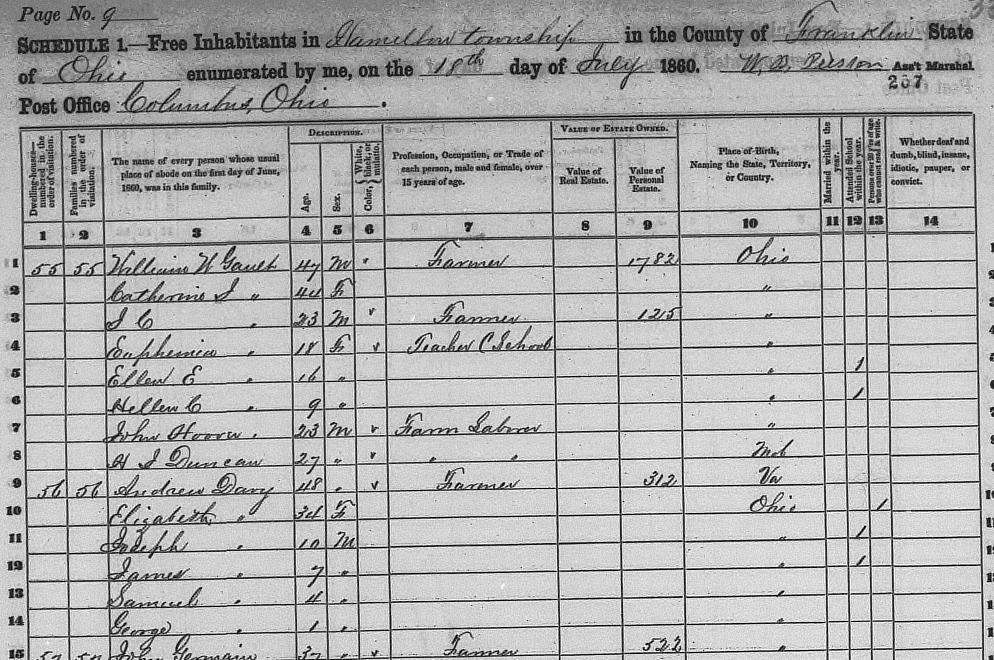 Page No. 9
SCHEDULE 1.—Free Inhabitants in Hamilton township in the County of Franklin State
of Ohio enumerated by me, on the 18th day of July 1860. Ass't Marshal
267
Post Office Columbus, Ohio.
Dwelling-house—numbered in the order of visitation.
Families numbered in the order of visitation.
The name of every person whose usual place of abode on the first day of June, 1860, was in this family.
DESCRIPTION.
Age.
Sex.
Color, White, black, or mulatto.
Profession, Occupation, or Trade of each person, male and female, over 15 years of age.
VALUE OF ESTATE OWNED.
Value of Real Estate.
Value of Personal Estate.
Place of Birth, Naming the State, Territory, or Country.
Married within the year.
Attended School within the year.
Persons over 20 y'rs of age who cannot read & write.
Whether deaf and dumb, blind, insane, idiotic, pauper, or convict.
1 2 3 4 5 6 7 8 9 10 11 12 13 14
1 55 55 William W Gault 47 M " Farmer 1782 Ohio
2 Catherine J " 44 F "
3 J C " 23 M " Farmer 125 "
4 Euphemia " 18 F " Teacher C School "
5 Ellen E " 16 " " 1
6 Hellen C " 9 " " 1
7 John Hoover " 23 M " Farm Laborer "
8 H J Duncan 27 " " " "
9 56 56 Andrew Davy 48 " " Farmer 312 Va
10 Elizabeth " 34 F Ohio 1
11 Joseph " 10 M " 1
12 James " 7 " " 1
13 Samuel " 4 " "
14 George " 1 " "
15 57 57 John Germain 37 " " Farmer 522 "